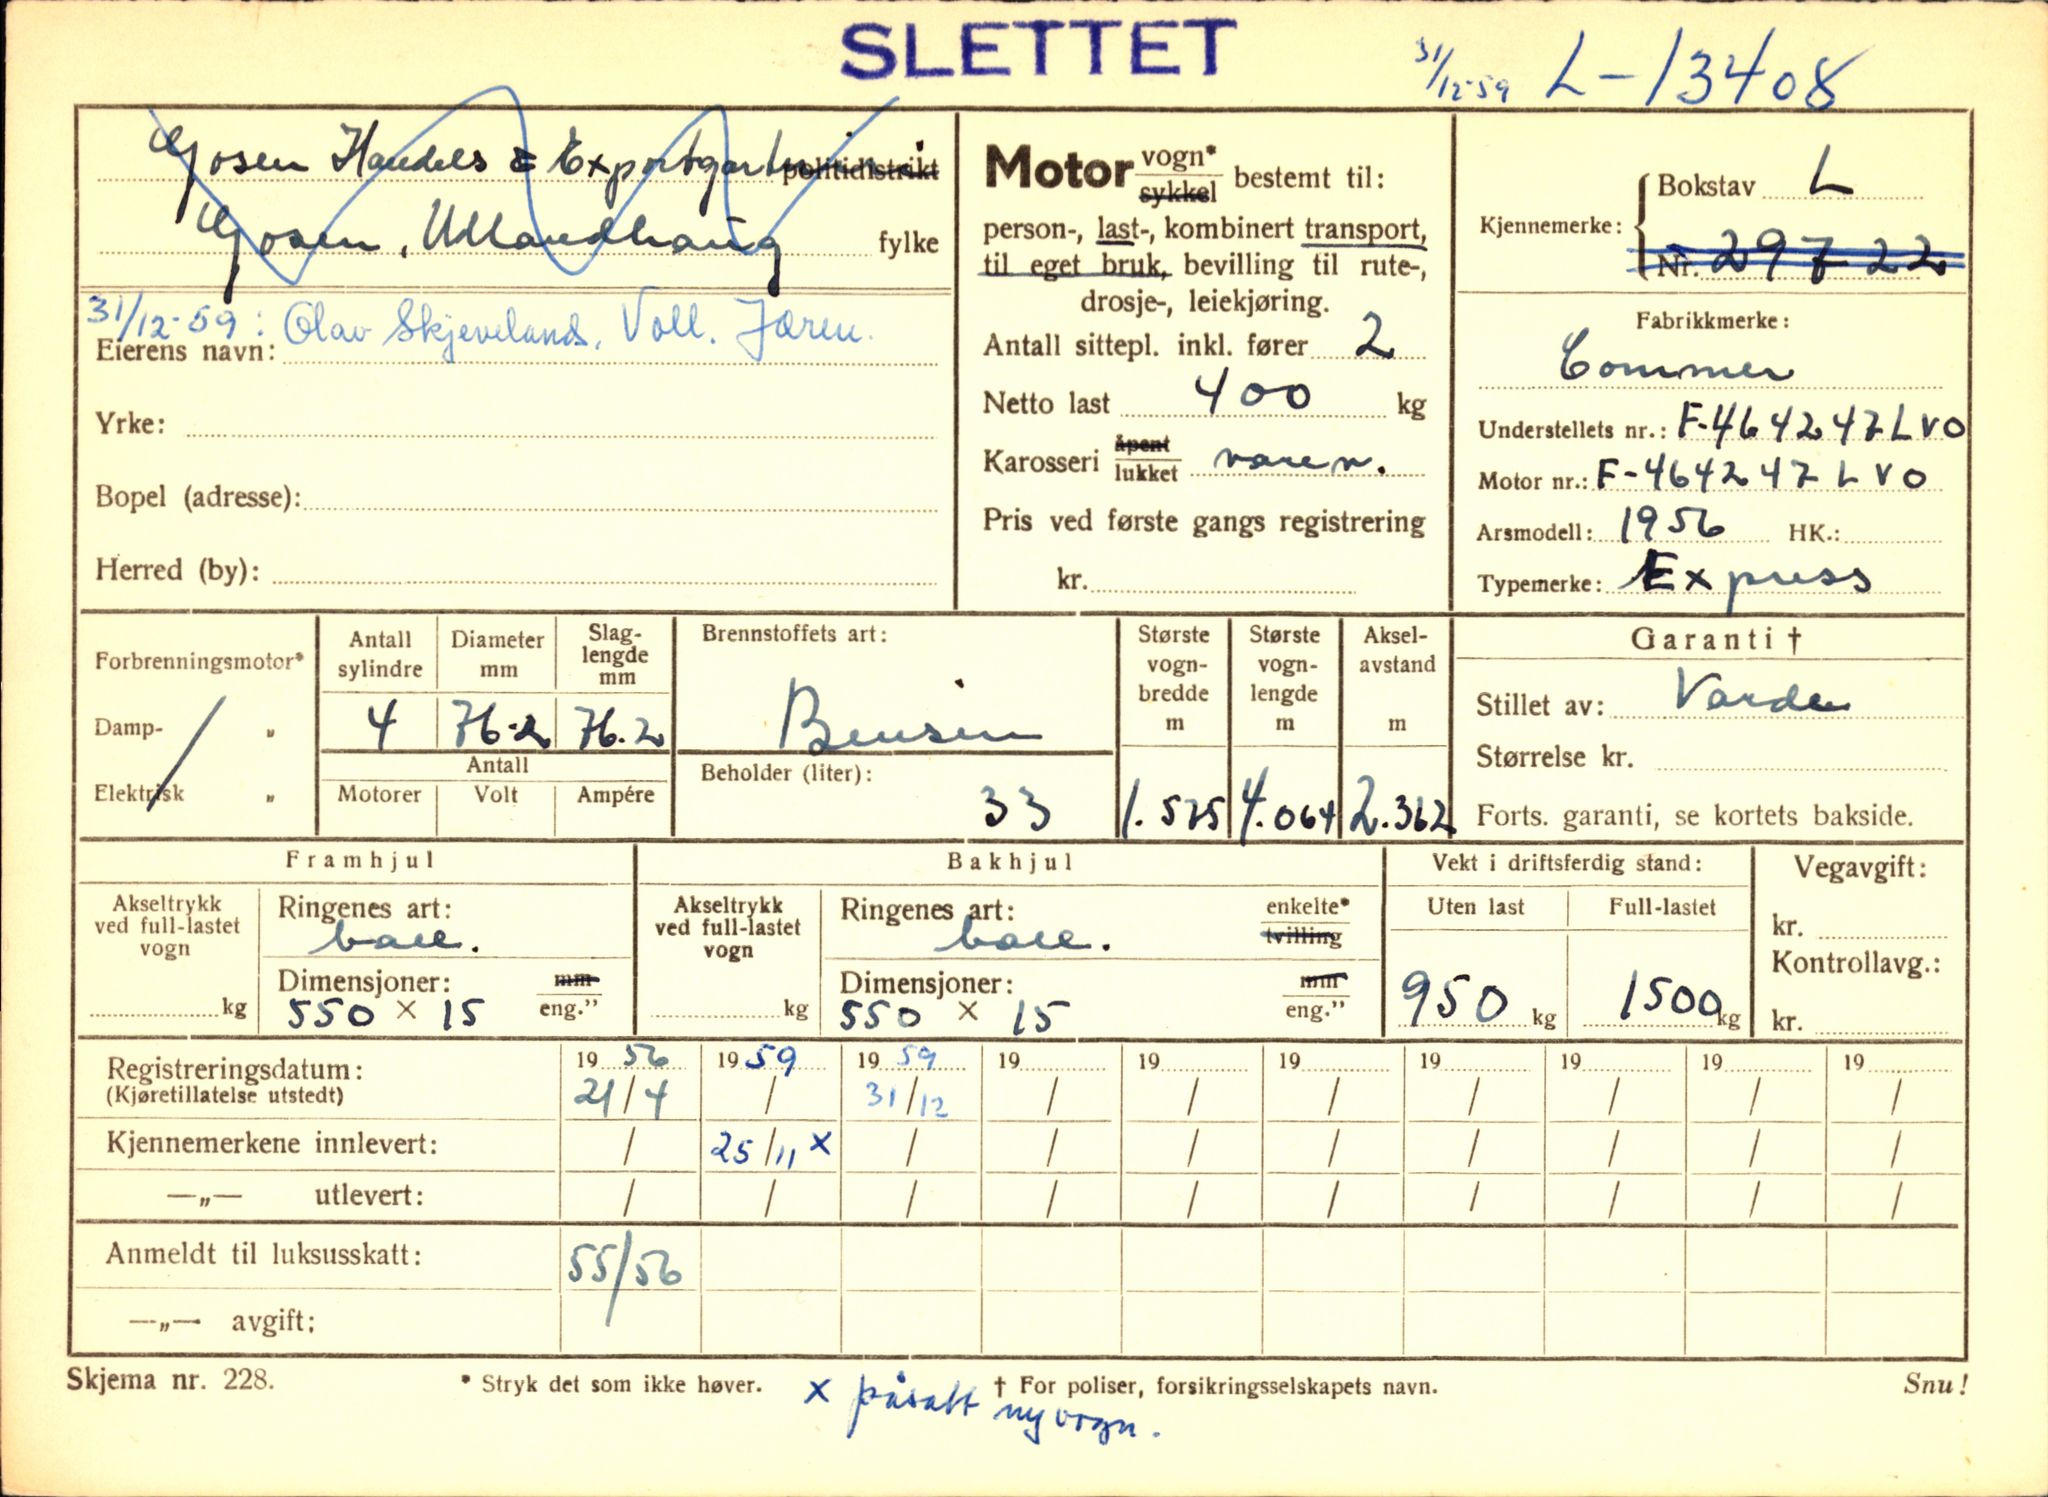 SLETTET
31/12-59 L-13408
Gosen Handels & Exportgartneri
politidistrikt
Gosen, Ullandhaug fylke
31/12-59: Olav Skjeveland, Voll. Jæren.
Eierens navn:
Yrke:
Bopel (adresse):
Herred (by):
Motor vogn* / sykkel bestemt til:
person-, last-, kombinert transport,
til eget bruk, bevilling til rute-,
drosje-, leiekjøring.
Antall sittepl. inkl. fører 2
Netto last 400 kg
Karosseri åpent / lukket varev.
Pris ved første gangs registrering
kr.
Kjennemerke: Bokstav L
Nr. 29722
Fabrikkmerke:
Commer
Understellets nr.: F-464247LVO
Motor nr.: F-464247LVO
Arsmodell: 1956 HK.:
Typemerke: Express
Forbrenningsmotor*
Damp- „
Elektrisk „
Antall sylindre
Diameter mm
Slag-lengde mm
4 76.2 76.2
Antall
Motorer Volt Ampére
Brennstoffets art:
Bensin
Beholder (liter):
33
Største vogn-bredde m
1.575
Største vogn-lengde m
4.064
Aksel-avstand m
2.362
Garanti †
Stillet av: Varden
Størrelse kr.
Forts. garanti, se kortets bakside.
Framhjul
Akseltrykk ved full-lastet vogn
kg
Ringenes art:
ball.
Dimensjoner: mm / eng.”
550 × 15
Bakhjul
Akseltrykk ved full-lastet vogn
kg
Ringenes art: enkelte* / tvilling
ball.
Dimensjoner: mm / eng.”
550 × 15
Vekt i driftsferdig stand:
Uten last Full-lastet
950 kg 1500 kg
Vegavgift:
kr.
Kontrollavg.:
kr.
Registreringsdatum: 1956 1959 1959 19 19 19 19 19 19 19
(Kjøretillatelse utstedt) 21/4 / 31/12 / / / / / / /
Kjennemerkene innlevert: / 25/11 x / / / / / / / /
—„— utlevert: / / / / / / / / / /
Anmeldt til luksusskatt: 55/56
—„— avgift:
Skjema nr. 228. * Stryk det som ikke høver. † For poliser, forsikringsselskapets navn. Snu!
x påsatt ny vogn.